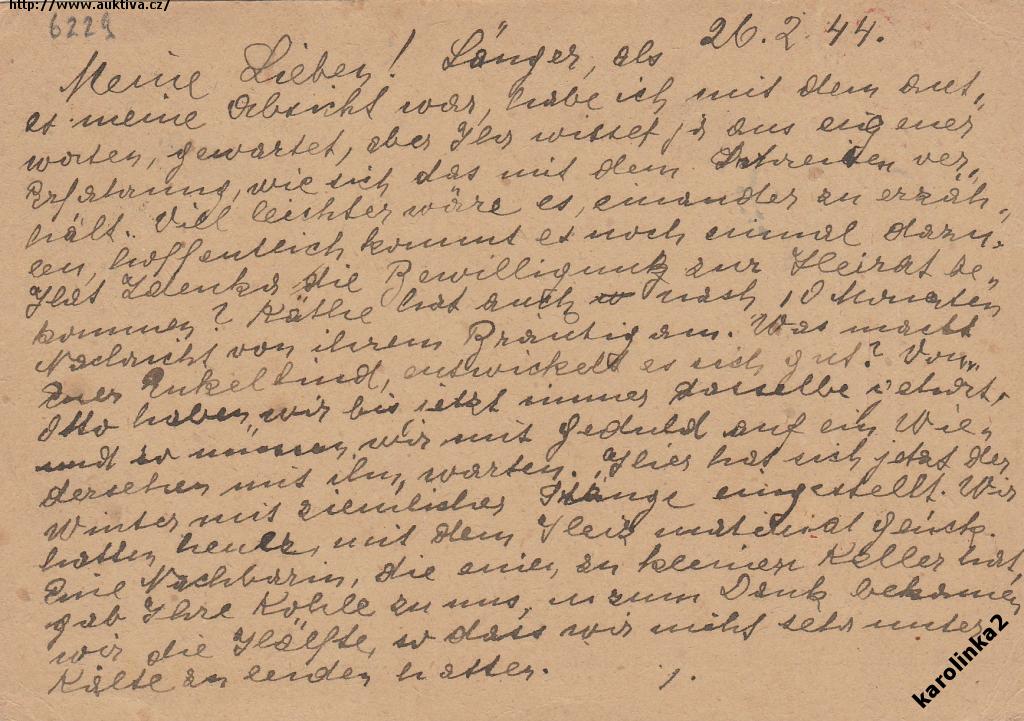 http://www.auktiva.cz/
6229
26.2.44.
Meine Lieben! Länger, als
es meine Absicht war, habe ich mit dem ant„
worten, gewartet, aber Ihr wisset ja aus eigener
Erfahrung, wie sich das mit dem Schreiben ver„
hält. Viel leichter wäre es, einander zu erzäh„
len, hoffentlich kommt es noch einmal dazu.
Hat Zdenka die Bewilligung zur Heirat be„
kommen? Käthe hat auch nach 10 Monaten
Nachricht von ihrem Bräutigam. Was macht
Euer Enkelkind, entwickelt es sich gut? Von
Otto haben wir bis jetzt immer dasselbe gehört,
und so müssen wir mit Geduld auf ein Wie„
dersehen mit ihm warten. Hier hat sich jetzt der
Winter mit ziemlicher Strenge eingestellt. Wir
hatten heuer mit dem Heizmaterial Glück.
Eine Nachbarin, die einen zu kleinen Keller hat,
gab Ihre Kohle zu uns, u zum Dank bekamen
wir die Hälfte, so dass wir nicht sehr unter
Kälte zu leiden hatten.
1.
karolinka2